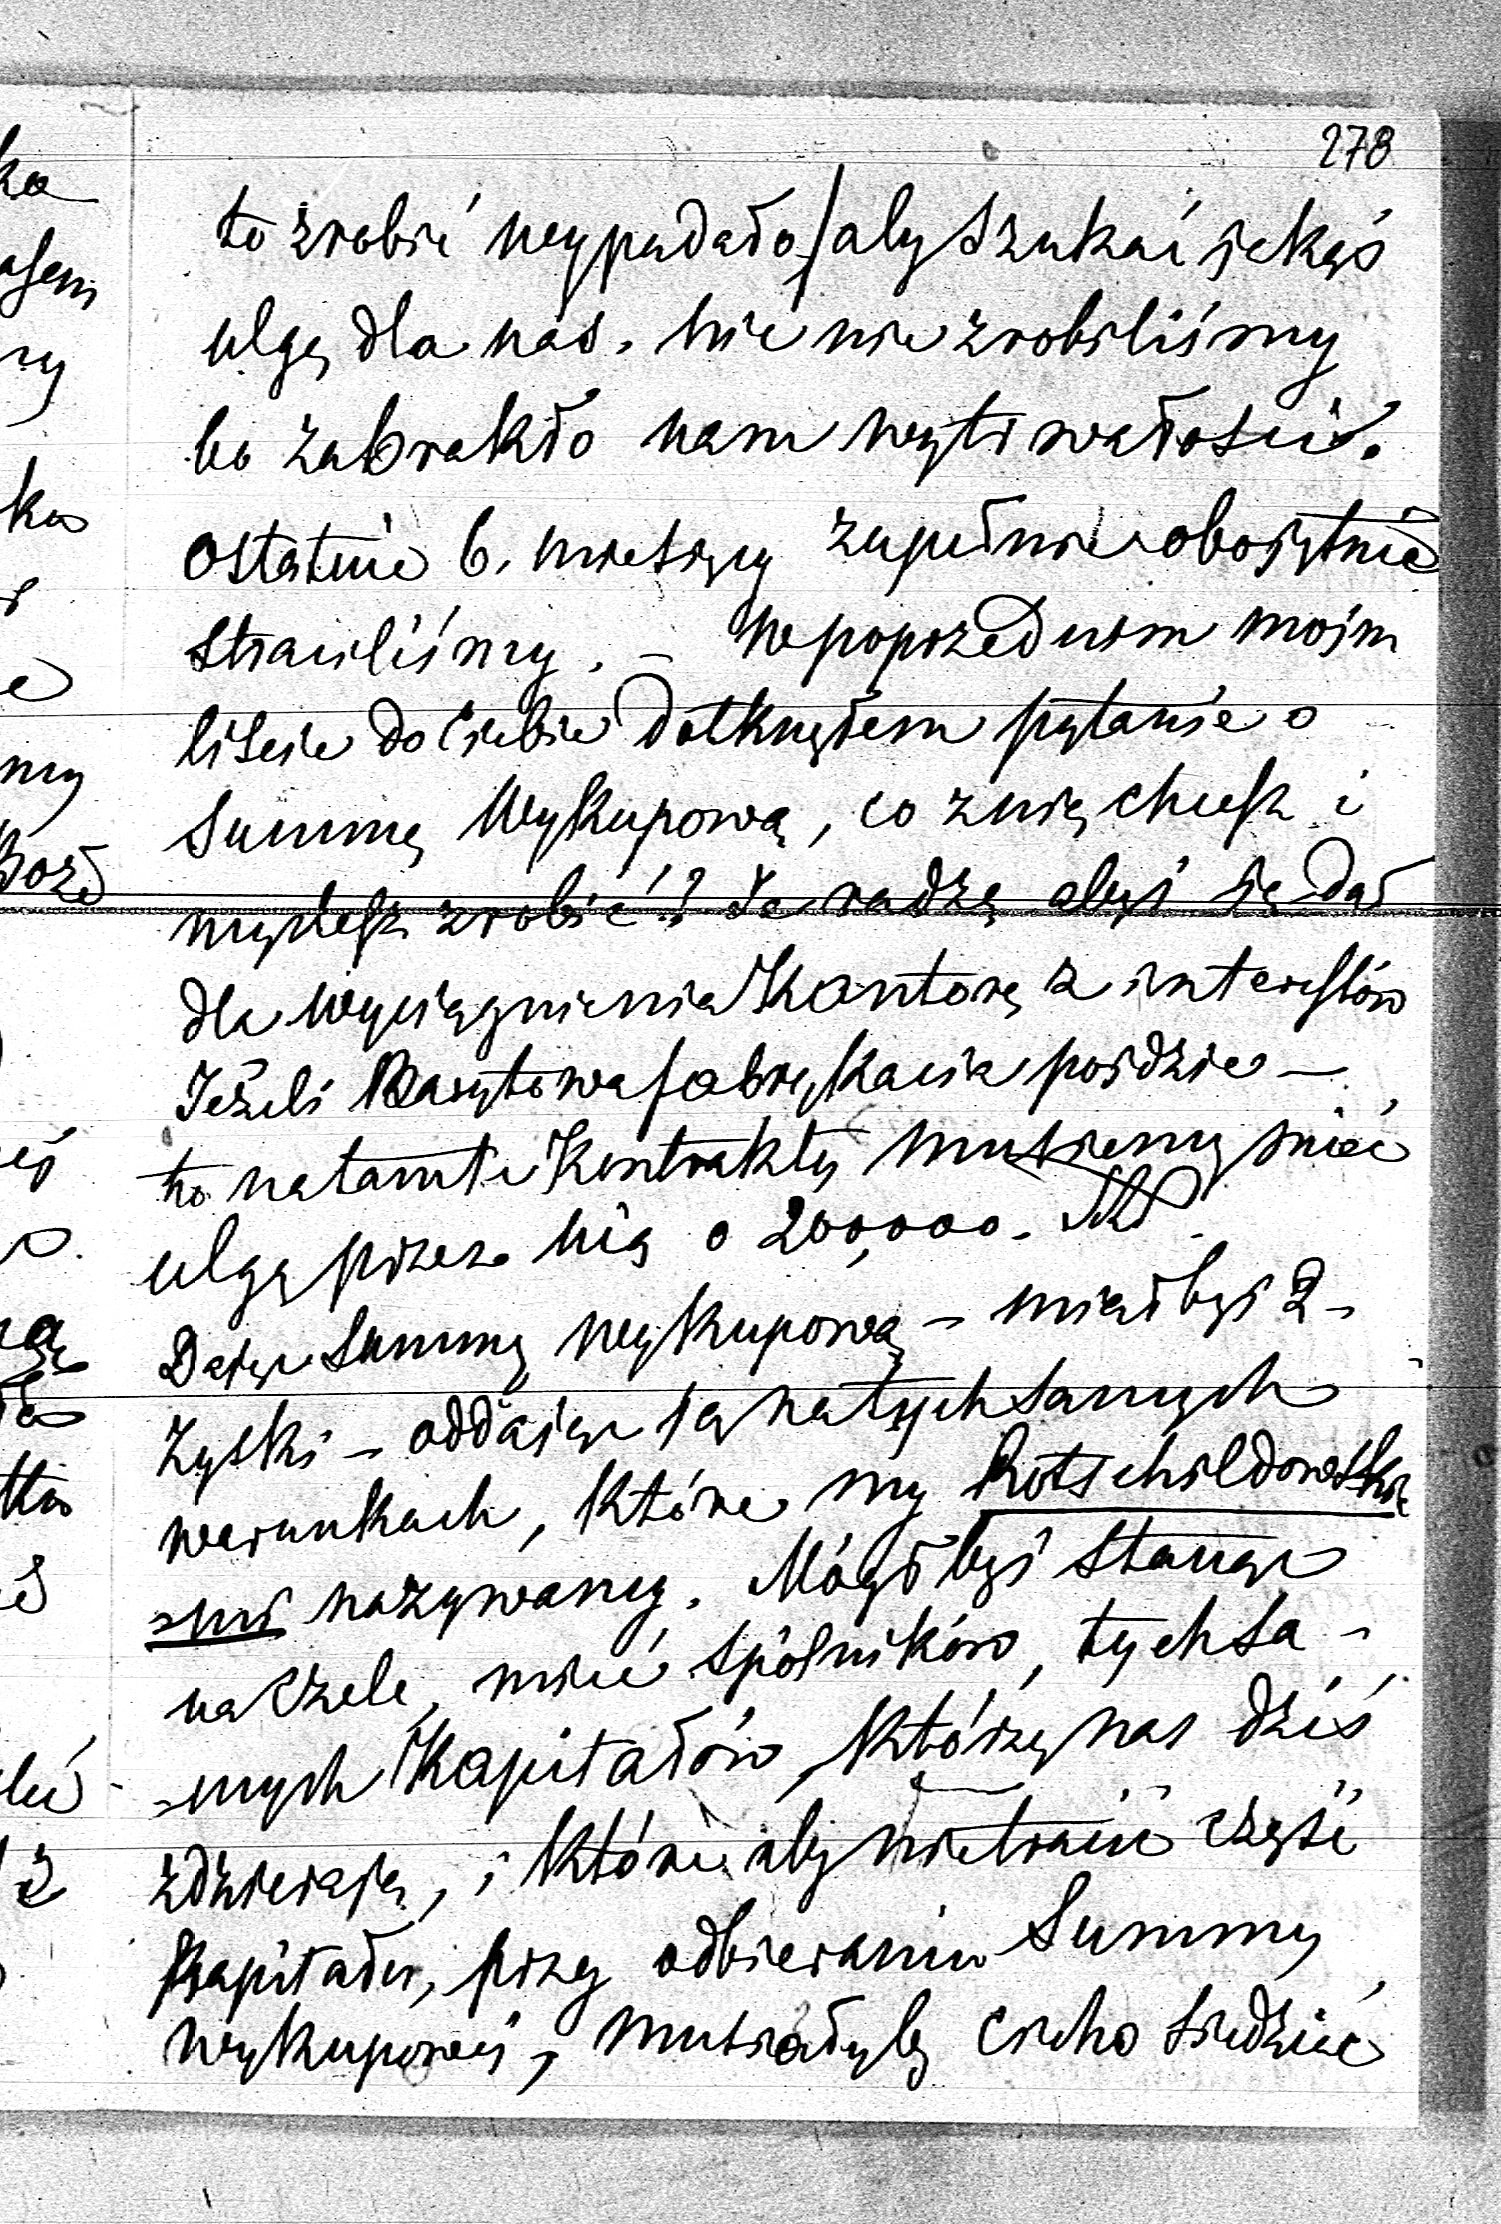 278
to zrobić wypadało/ aby szukać jakąś
ulgę dla nas. Nic nie zrobiliśmy
bo zabrakło nam wytrwałości.
Ostatnie 6. miesięcy zupełnie obojętnie
straciliśmy. – W poprzednim moim
liście do Ciebie dotknąłem pytanie o
Summę Wykupową, co z nią chcesz i
myślesz zrobić!? Ja radzę abyś ją dał
dla wyciągnienia Kantoru z interessów
Jeżeli Barytowa fabrykacia pójdzie –
to na tamte Kontrakty musiemy mieć
ulgę przez nią o 200,000.
Dając Summę wykupową – miałbyś 2-
zyski – oddając ją na tych samych
warunkach, które my Rotschildowski
-mi nazywamy. Mógłbyś stanąć
na czele, mieć spólników, tych sa-
-mych Kapitałów, którzy nas dziś
zdzierają, i które aby nie tracić część
Kapitału, przy odbieraniu Summy
wykupowej, musiałyby cicho siedzieć
ka
ny
ka
e
my
ną
tka
z